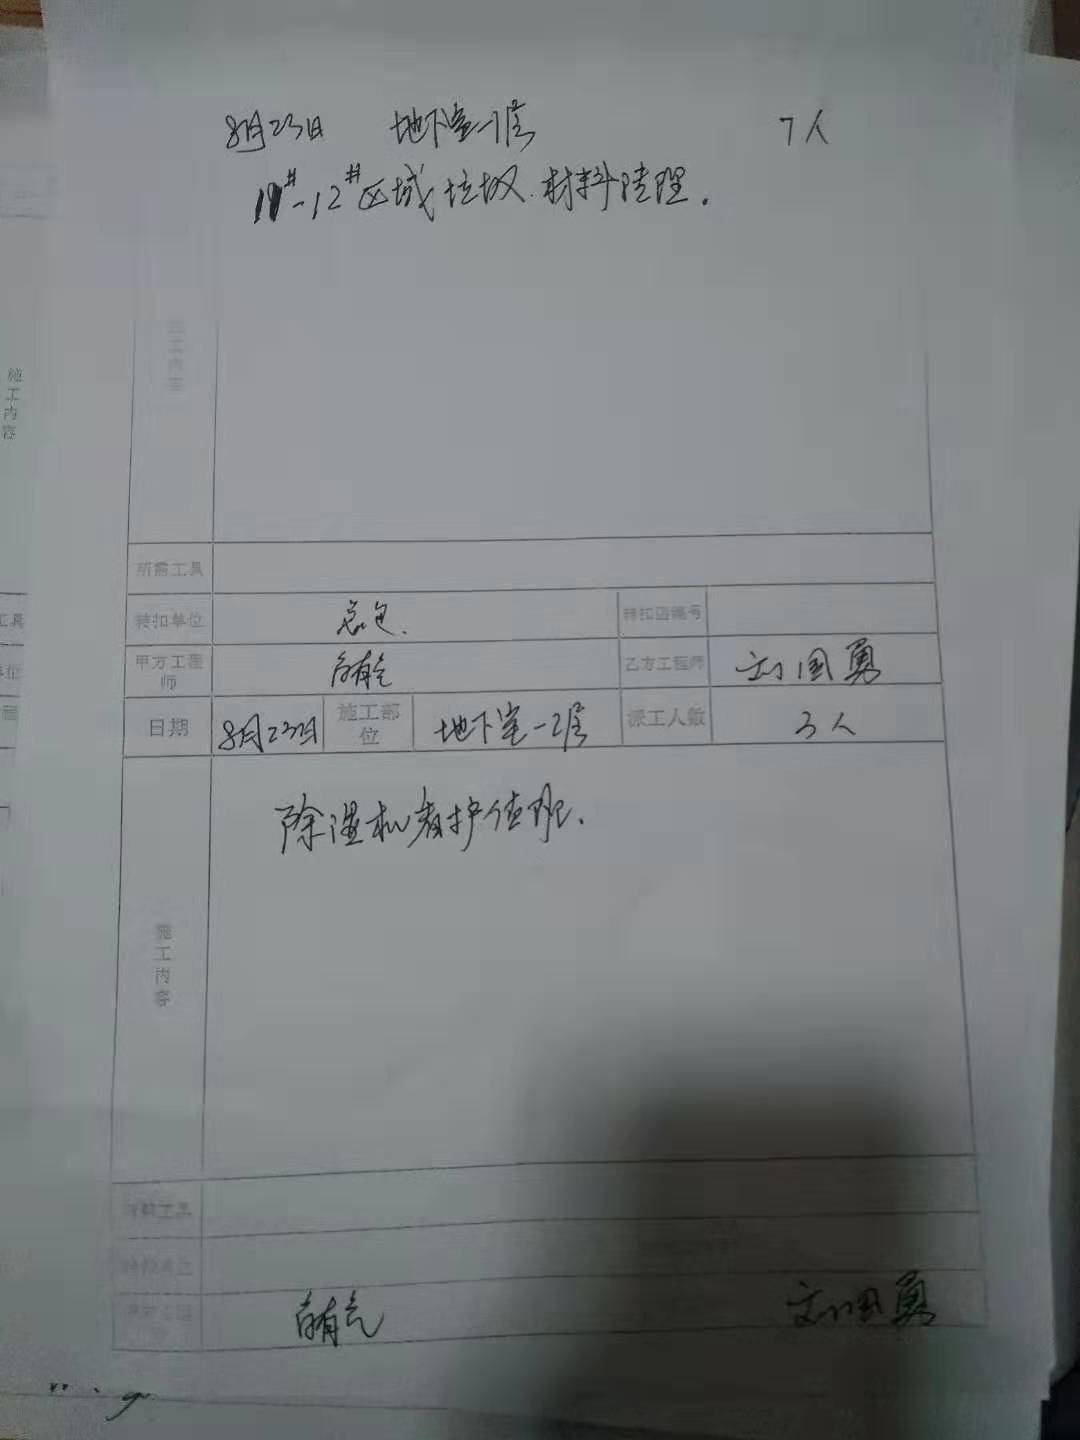 8月23日 地下室-1层 7人
11#-12#区域垃圾.材料清理.
施工内容
施工内容
所需工具
转扣单位 总包. 转扣函编号
甲方工程师 乙方工程师 刘国勇
日期 8月23日 施工部位 地下室-2层 派工人数 3人
除湿机看护值班.
施工内容
所需工具
转扣单位
甲方工程师 刘国勇